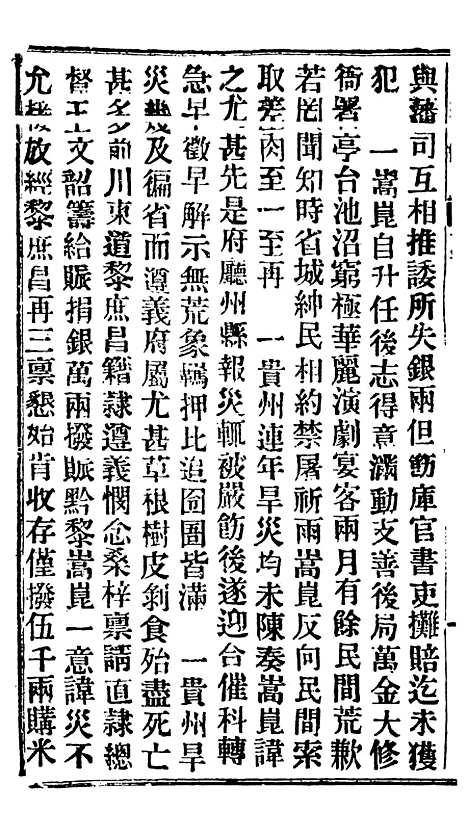 與藩司互相推諉所失銀兩但飭庫官書吏攤賠迄未獲
犯　一嵩崑自升任後志得意滿動支善後局萬金大修
衙署亭台池沼窮極華麗演劇宴客兩月有餘民間荒歉
若罔聞知時省城紳民相約禁屠祈雨嵩崑反向民間索
取差肉至一至再　一貴州連年旱災均未陳奏嵩崑諱
之尤甚先是府廳州縣報災輒被嚴飭後遂迎合催科轉
急早徵早解示無荒象羈押比追囹圄皆滿　一貴州旱
災幾及徧省而遵義府屬尤甚草根樹皮剝食殆盡死亡
甚多前川東道黎庶昌籍隸遵義憫念桑梓稟請直隸總
督王文韶籌給賑捐銀萬兩撥賑黔黎嵩崑一意諱災不
允放經黎庶昌再三稟懇始肯收存僅撥伍千兩購米